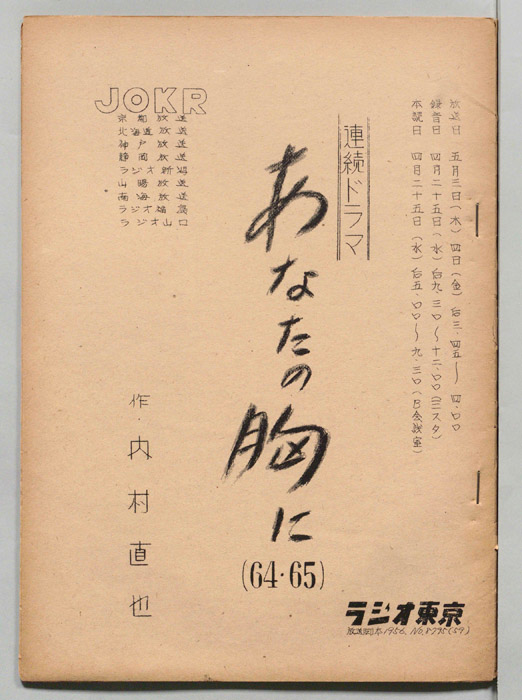 放送日 五月三日(木)四日(金)后三・四五〜四・〇〇
録音日 四月二十五日(水)后九・三〇〜十二・〇〇(三スタ)
本読日 四月二十五日(水)后五・〇〇〜九・三〇(B会議室)
連続ドラマ
あなたの胸に
(64・65)
JOKR
京都放送
北海道放送
神戸放送
静岡放送
ラジオ新潟
山陽放送
南海放送
ラジオ山口
作・内村直也
ラジオ東京
1956. No.8795(59)